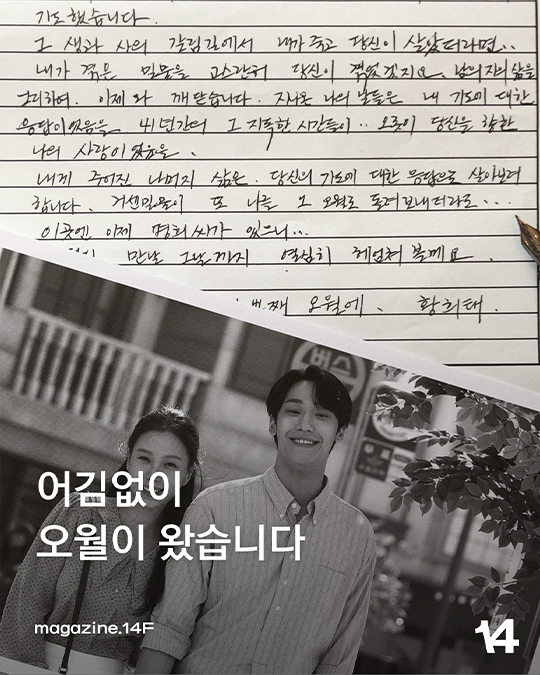 기도했습니다.
그 생과 사의 갈림길에서 내가 죽고 당신이 살았더라면..
내가 겪은 밀물을 고스란히 당신이 겪었겠지요. 남은자의 삶을
이제야 깨닫습니다. 지나온 나의 날들은 내 기도에 대한
응답이었음을 41년간의 그 지독한 시간들이.. 오롯이 당신을 향한
나의 사랑이었음을.
내게 주어진 나머지 삶은. 당신의 기도에 대한 응답으로 살아보려
합니다. 거센 밀물이 또 나를 그 오월로 돌려보내더라도...
이곳엔 이제 명희씨가 있으니...
만날 그날까지 열심히 헤엄쳐 볼게요.
번째 오월에. 황희태.
버스
어김없이
오월이 왔습니다
magazine.14F
14